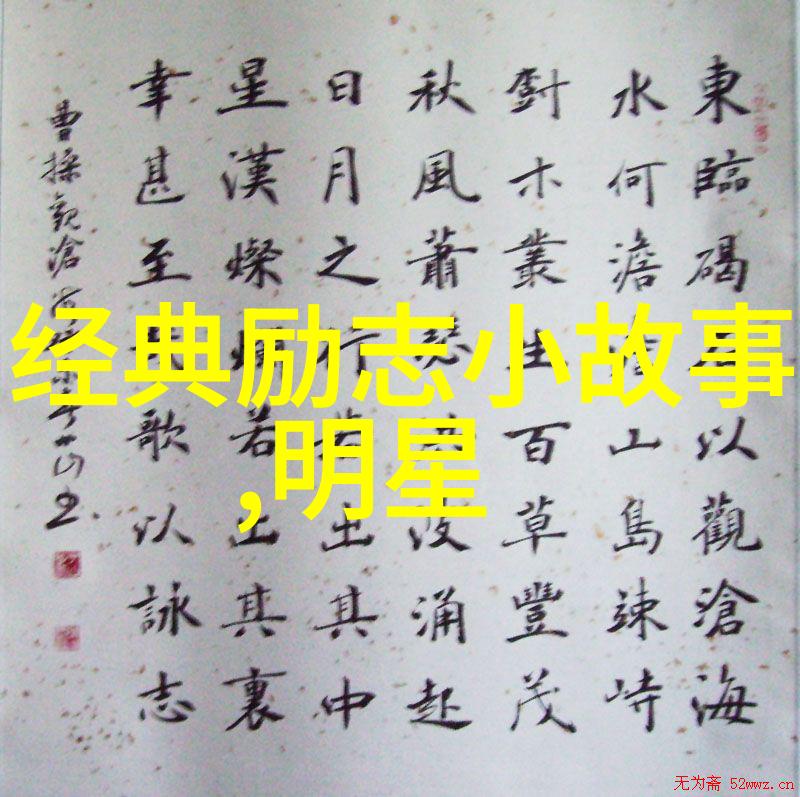 经典励志小故事
,明星
東臨碣石以觀滄海
水何澹澹山島竦峙
木叢生百草豐茂
秋風蕭瑟洪波涌起
日月之行若出其中
星漢燦爛若出其裏
幸甚至哉歌以詠志
曹操觀滄海
无为斋 52wwz.cn